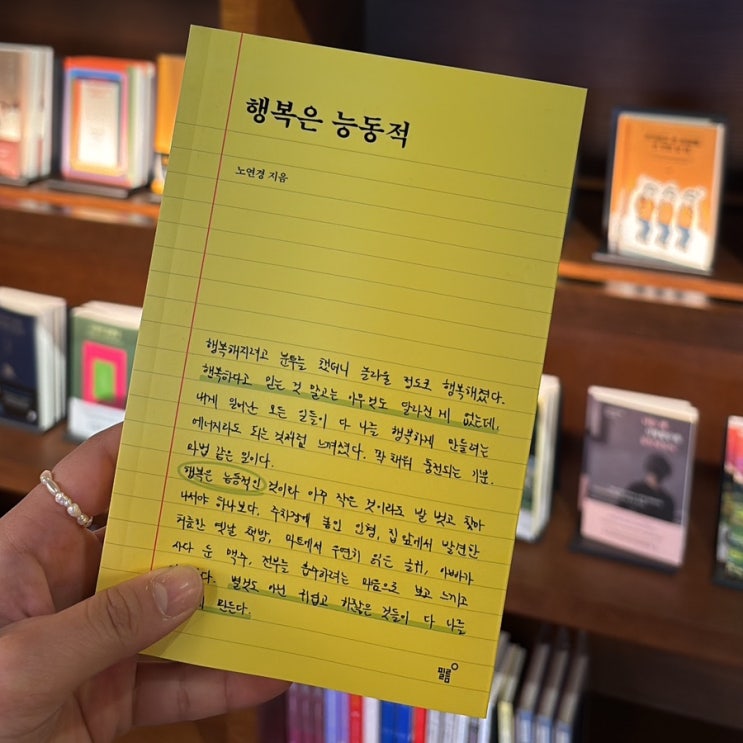 행복은 능동적
노연경 지음
행복해지려고 분투를 했더니 놀라울 정도로 행복해졌다.
행복하다고 믿는 것 말고는 아무것도 달라진 게 없는데,
내게 일어난 모든 일들이 다 나를 행복하게 만들려는
에너지라도 되는 것처럼 느껴졌다. 꽉 채워 충전되는 기분.
마법 같은 일이다.
행복은 능동적인 것이라 아주 작은 것이라도 발 벗고 찾아
나서야 하나보다. 주차장에 붙인 인형, 집 앞에서 발견한
허름한 옛날 책방, 마트에서 우연히 읽은 글귀, 아빠가
사다 둔 맥주, 전부를 흡수하려는 마음으로 보고 느끼고
다. 별것도 아닌 귀엽고 하찮은 것들이 다 나를
만든다.
필름